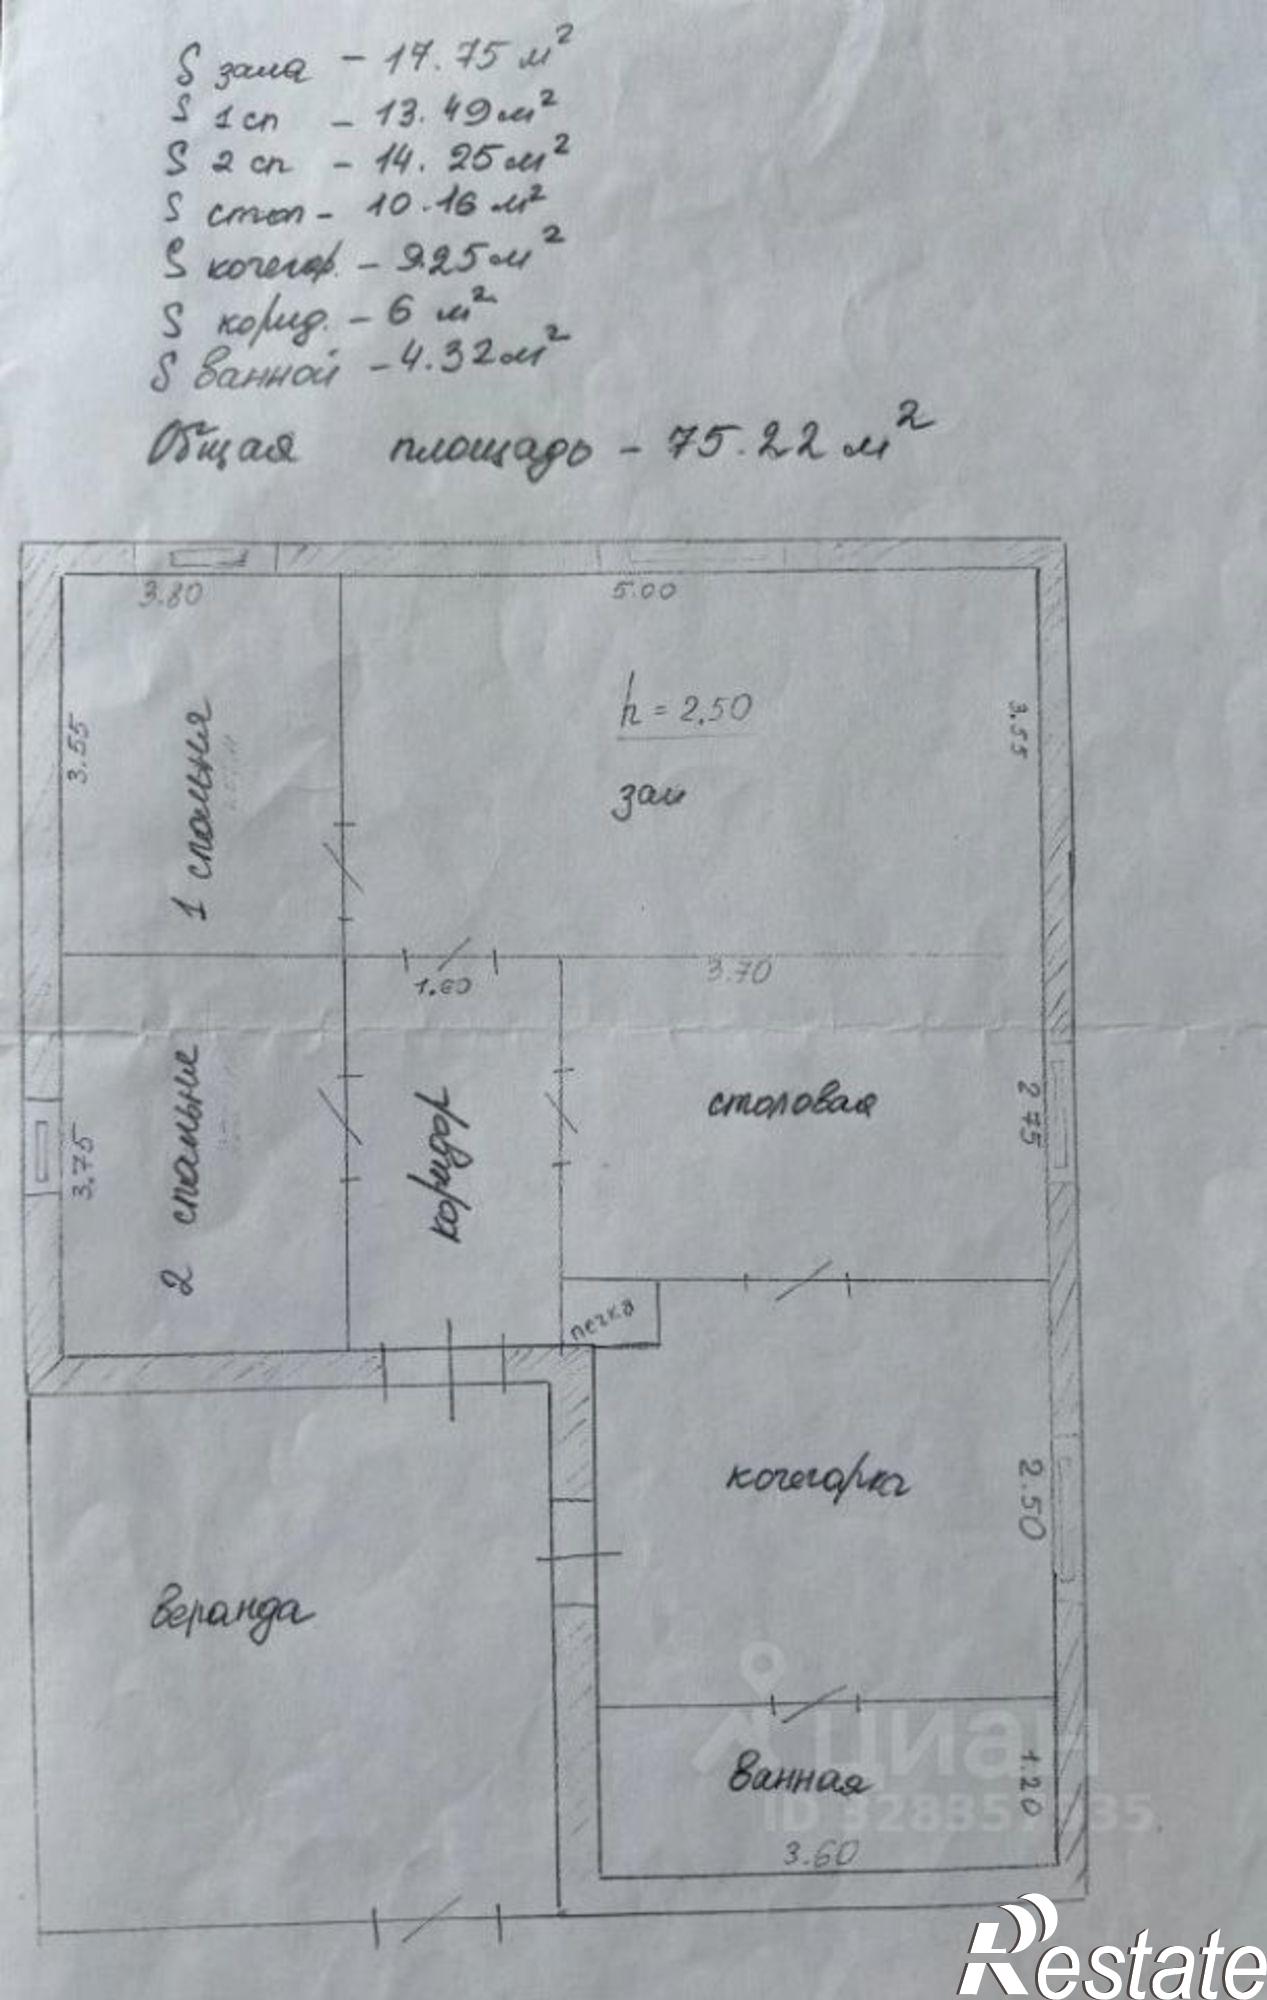 S зала - 17.75 м²
S 1 сп - 13.49 м²
S 2 сп - 14.25 м²
S стол - 10.16 м²
S кочегар. - 9.25 м²
S корид. - 6 м²
S ванной - 4.32 м²
Общая площадь - 75.22 м²
3.80
5.00
3.55
1 спальня
h = 2,50
зал
3.55
1.60
3.70
3.75
2 спальня
коридор
столовая
2 75
печка
кочегарка
2.50
веранда
ванная
1.20
3.60
циан
Restate